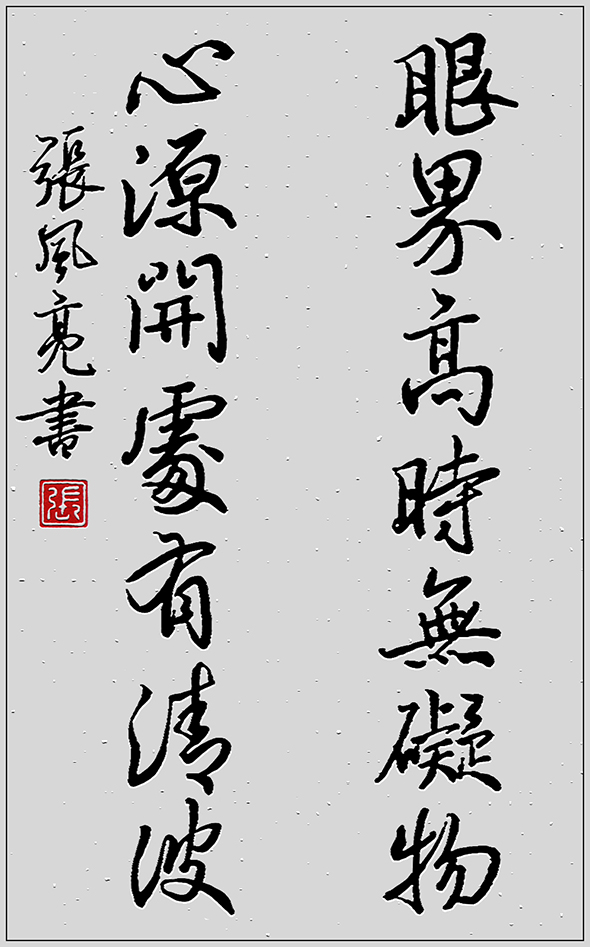 眼界高時無礙物
心源開處有清波
張風亮書
張